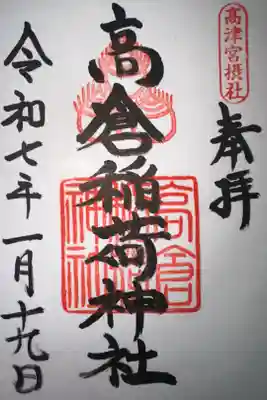 高津宮摂社
奉拝
高倉稲荷神社
高倉
神社
令和七年一月十九日